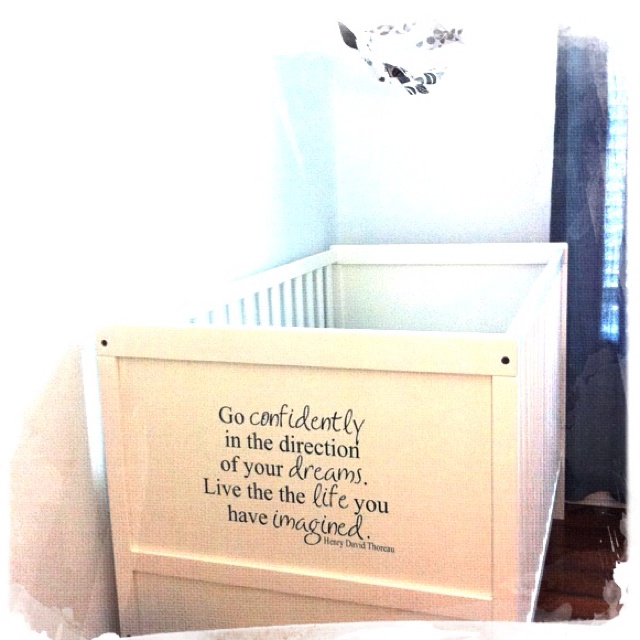 Go confidently
in the direction
of your dreams.
Live the the life you
have imagined.
Henry David Thoreau